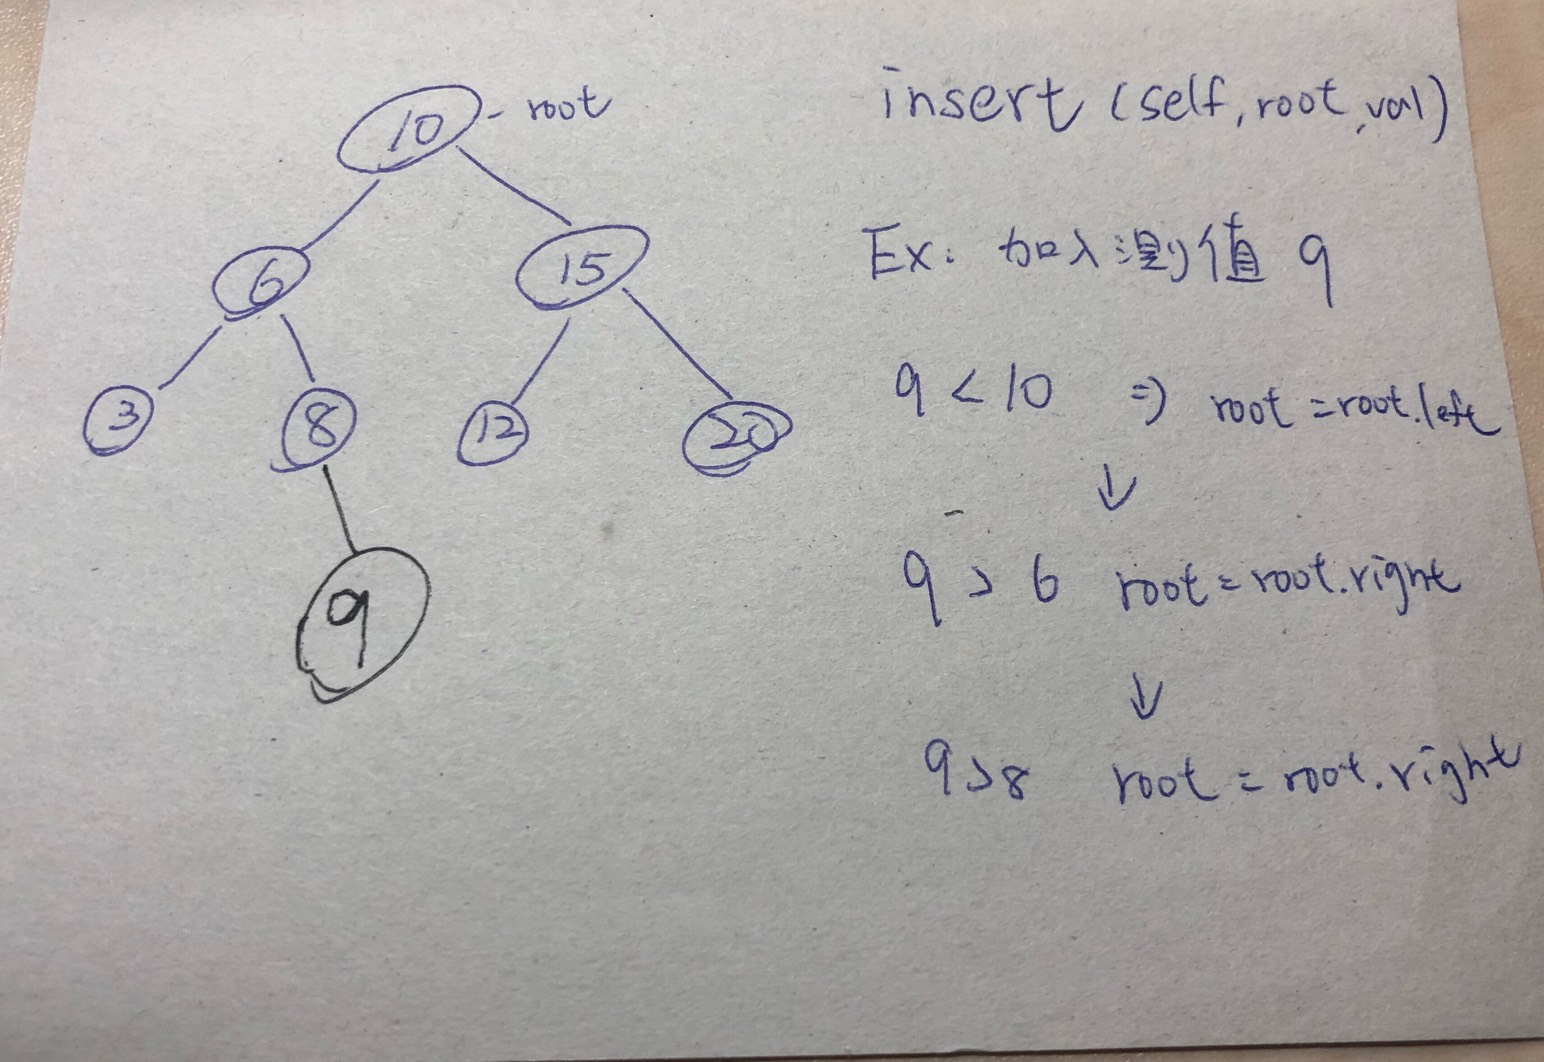 10 - root
6 15
3 8 12 20
9
insert (self, root, val)
Ex: 加入測值 9
9 < 10 => root = root.left
↓
9 > 6 root = root.right
↓
9 > 8 root = root.right